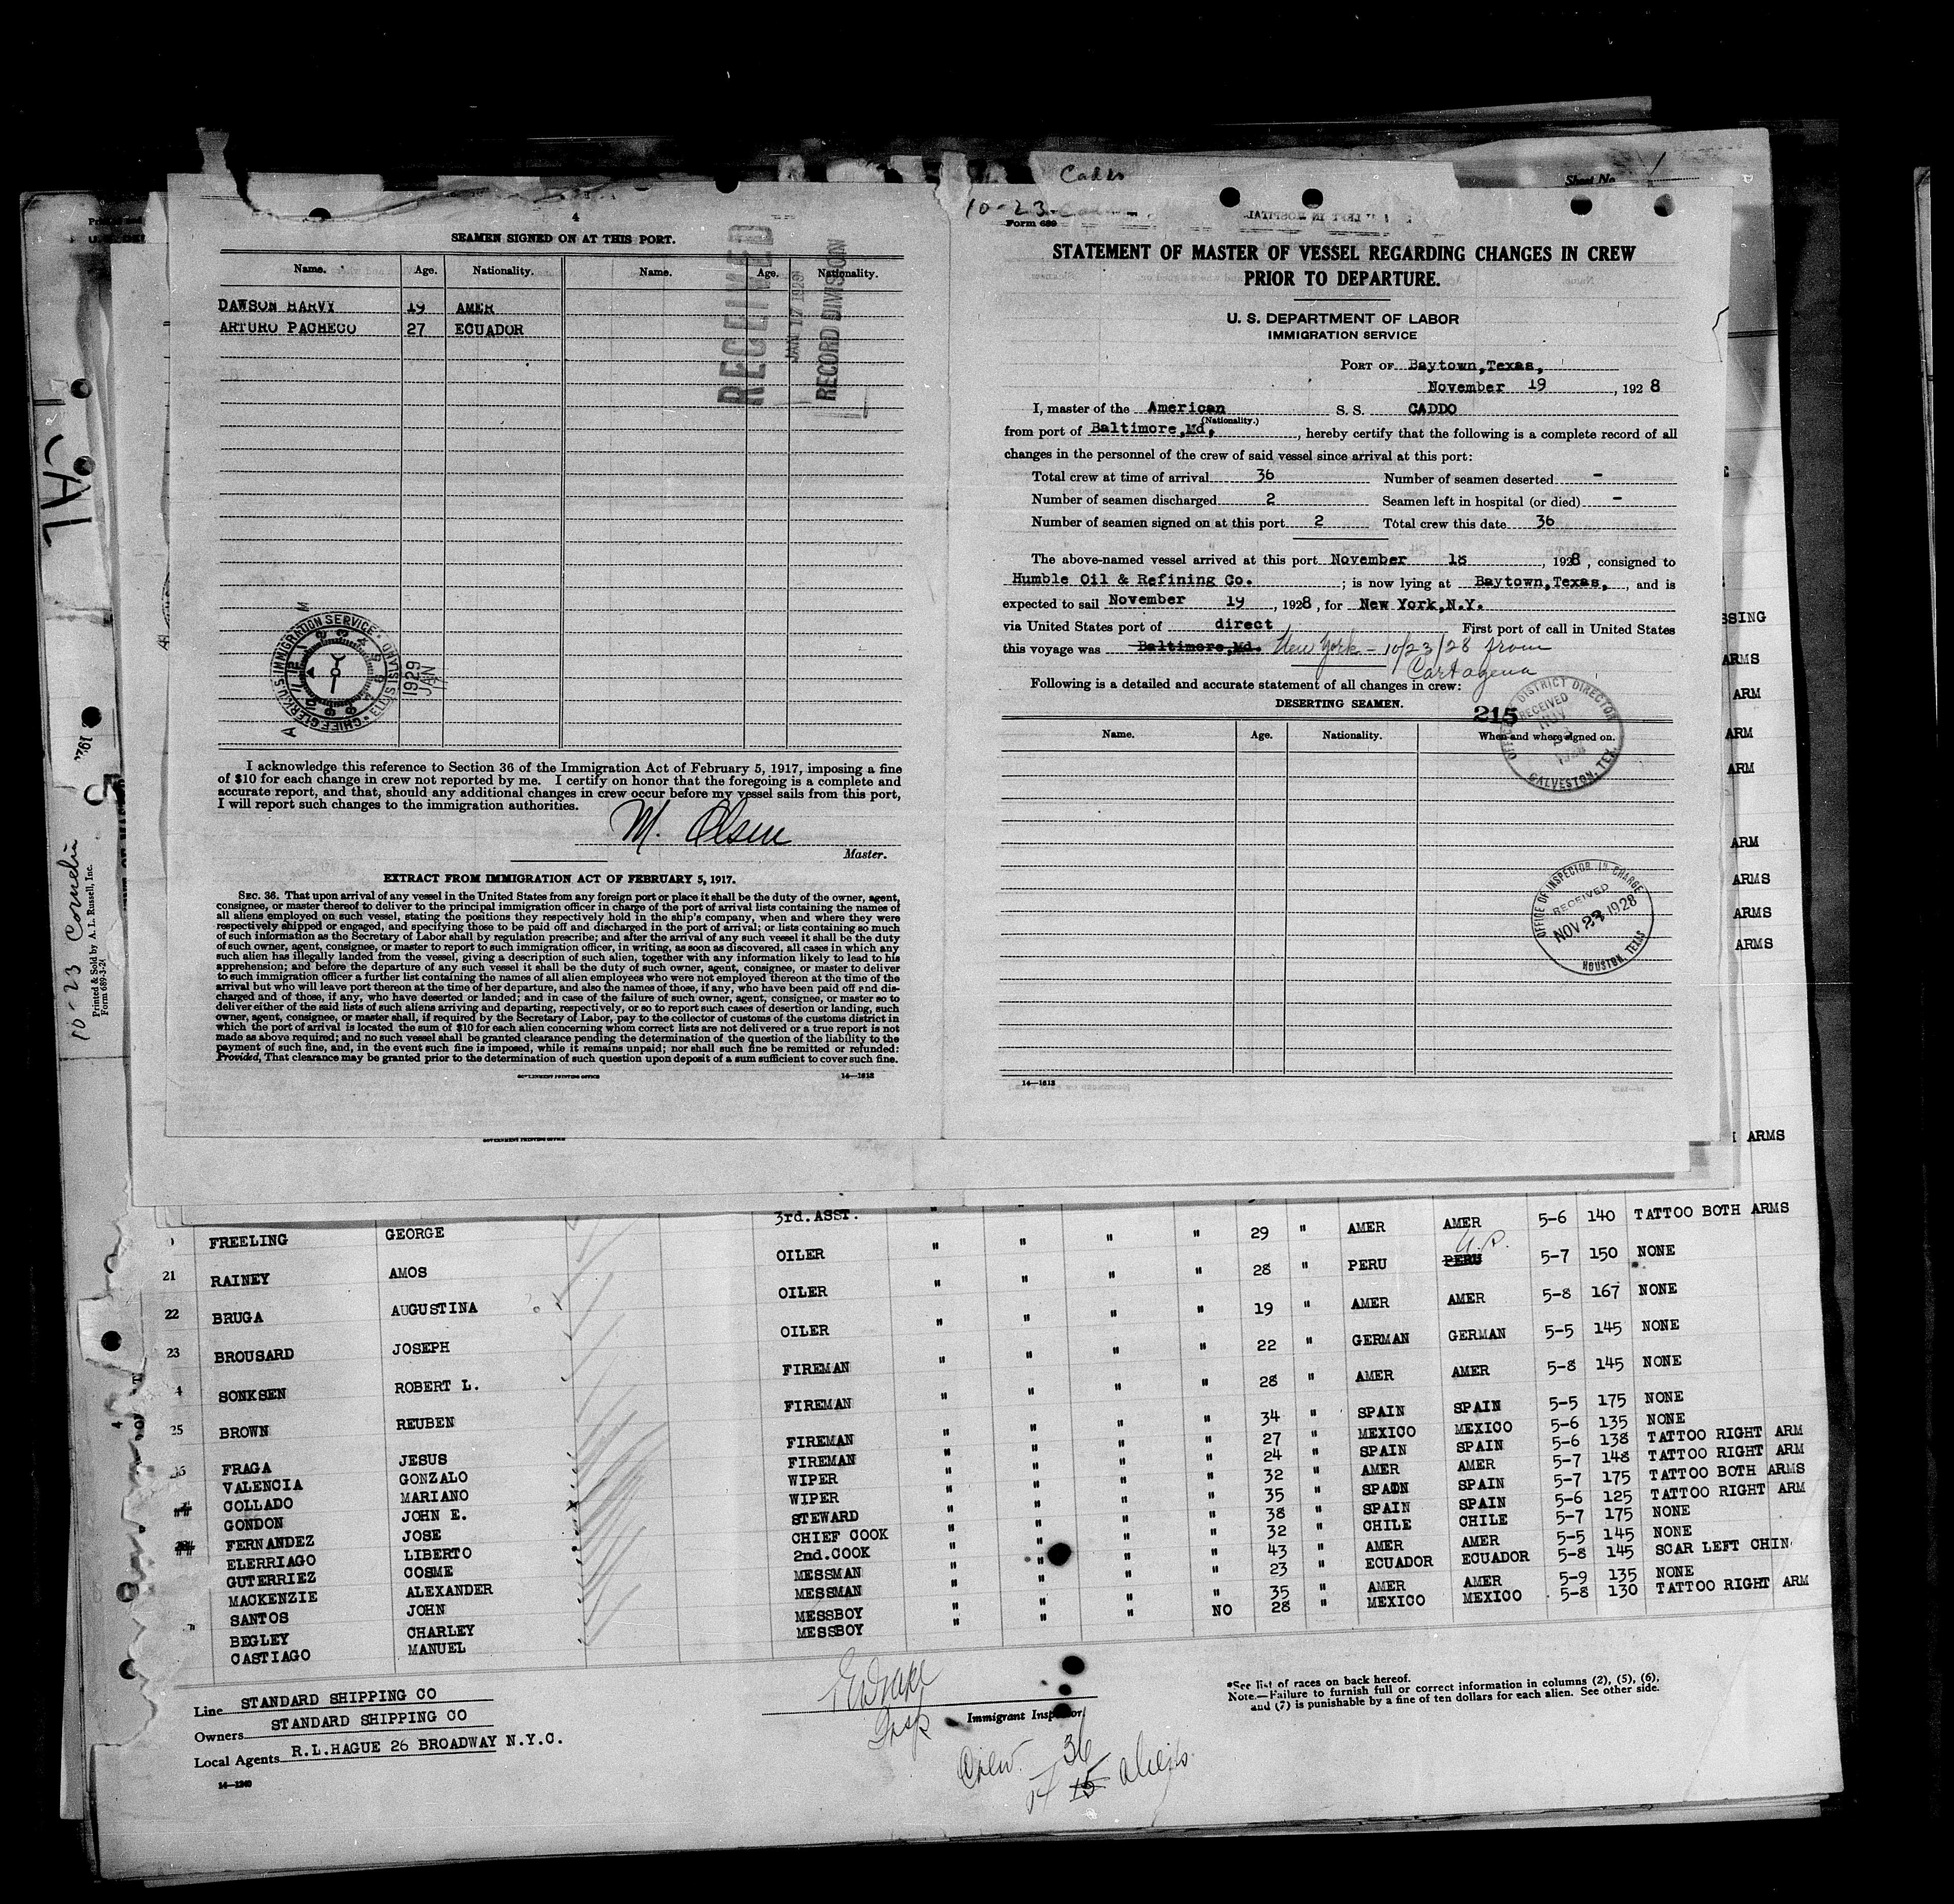 Cado
Sheet No. 1
10-23
4
SEAMEN SIGNED ON AT THIS PORT.
Name. Age. Nationality. Name. Age. Nationality.
DAWSON HARVY 19 AMER
ARTURO PACHECO 27 ECUADOR
RECEIVED
JAN 17 1929
RECORD DIVISION
U.S. IMMIGRATION SERVICE
CHIEF CLERK
1929
JAN
I acknowledge this reference to Section 36 of the Immigration Act of February 5, 1917, imposing a fine
of $10 for each change in crew not reported by me. I certify on honor that the foregoing is a complete and
accurate report, and that, should any additional changes in crew occur before my vessel sails from this port,
I will report such changes to the immigration authorities.
M. Olsen
Master.
EXTRACT FROM IMMIGRATION ACT OF FEBRUARY 5, 1917.
SEC. 36. That upon arrival of any vessel in the United States from any foreign port or place it shall be the duty of the owner, agent,
consignee, or master thereof to deliver to the principal immigration officer in charge of the port of arrival lists containing the names of
all aliens employed on such vessel, stating the positions they respectively hold in the ship's company, when and where they were
respectively shipped or engaged, and specifying those to be paid off and discharged in the port of arrival; or lists containing so much
of such information as the Secretary of Labor shall by regulation prescribe; and after the arrival of any such vessel it shall be the duty
of such owner, agent, consignee, or master to report to such immigration officer, in writing, as soon as discovered, all cases in which any
such alien has illegally landed from the vessel, giving a description of such alien, together with any information likely to lead to his
apprehension; and before the departure of any such vessel it shall be the duty of such owner, agent, consignee, or master to deliver
to such immigration officer a further list containing the names of all alien employees who were not employed thereon at the time of the
arrival but who will leave port thereon at the time of her departure, and also the names of those, if any, who have been paid off and dis-
charged and of those, if any, who have deserted or landed; and in case of the failure of such owner, agent, consignee, or master so to
deliver either of the said lists of such aliens arriving and departing, respectively, or so to report such cases of desertion or landing, such
owner, agent, consignee, or master shall, if required by the Secretary of Labor, pay to the collector of customs of the customs district in
which the port of arrival is located the sum of $10 for each alien concerning whom correct lists are not delivered or a true report is not
made as above required; and no such vessel shall be granted clearance pending the determination of the question of the liability to the
payment of such fine, and, in the event such fine is imposed, while it remains unpaid; nor shall such fine be remitted or refunded:
Provided, That clearance may be granted prior to the determination of such question upon deposit of a sum sufficient to cover such fine.
GOVERNMENT PRINTING OFFICE 14—1613
GOVERNMENT PRINTING OFFICE
Form 689
STATEMENT OF MASTER OF VESSEL REGARDING CHANGES IN CREW
PRIOR TO DEPARTURE.
U. S. DEPARTMENT OF LABOR
IMMIGRATION SERVICE
PORT OF Baytown,Texas,
November 19, 1928
I, master of the American S. S. CADDO
(Nationality.)
from port of Baltimore,Md, hereby certify that the following is a complete record of all
changes in the personnel of the crew of said vessel since arrival at this port:
Total crew at time of arrival 36 Number of seamen deserted -
Number of seamen discharged 2 Seamen left in hospital (or died) -
Number of seamen signed on at this port 2 Total crew this date 36
The above-named vessel arrived at this port November 18, 1928, consigned to
Humble Oil & Refining Co. ; is now lying at Baytown,Texas, and is
expected to sail November 19, 1928, for New York,N.Y.
via United States port of direct First port of call in United States
this voyage was Baltimore,Md. New York - 10/23/28 from
Cartagena
Following is a detailed and accurate statement of all changes in crew:
DESERTING SEAMEN.
215
Name. Age. Nationality. When and where signed on.
DISTRICT DIRECTOR
RECEIVED
NOV
GALVESTON, TEX.
OFFICE OF INSPECTOR IN CHARGE
RECEIVED
NOV 23 1928
HOUSTON, TEXAS
14—1613
10-23
Printed & Sold by A. L. Russell, Inc.
SSING
ARMS
ARM
ARM
ARM
ARM
ARMS
ARMS
ARMS
ARMS
3rd.ASST. " " " "
FREELING GEORGE OILER " " " " 29 " AMER AMER 5-6 140 TATTOO BOTH ARMS
21 RAINEY AMOS OILER " " " " 28 " PERU PERU 5-7 150 NONE
22 BRUGA AUGUSTINA OILER " " " " 19 " AMER AMER 5-8 167 NONE
23 BROUSARD JOSEPH FIREMAN " " " " 22 " GERMAN GERMAN 5-5 145 NONE
4 SONKSEN ROBERT L. FIREMAN " " " " 28 " AMER AMER 5-8 145 NONE
25 BROWN REUBEN FIREMAN " " " " 34 " SPAIN SPAIN 5-5 175 NONE
FRAGA JESUS FIREMAN " " " " 27 " MEXICO MEXICO 5-6 135 NONE
VALENCIA GONZALO WIPER " " " " 24 " SPAIN SPAIN 5-6 138 TATTOO RIGHT ARM
COLLADO MARIANO WIPER " " " " 32 " AMER AMER 5-7 148 TATTOO RIGHT ARM
GONDON JOHN E. STEWARD " " " " 35 " SPAIN SPAIN 5-7 175 TATTOO BOTH ARMS
FERNANDEZ JOSE CHIEF COOK " " " " 38 " SPAIN SPAIN 5-6 125 TATTOO RIGHT ARM
ELERRIAGO LIBERTO 2nd.COOK " " " " 32 " CHILE CHILE 5-7 175 NONE
GUTERRIEZ COSME MESSMAN " " " " 43 " AMER AMER 5-5 145 NONE
MACKENZIE ALEXANDER MESSMAN " " " " 23 " ECUADOR ECUADOR 5-8 145 SCAR LEFT CHIN
SANTOS JOHN MESSBOY " " " " 35 " AMER AMER 5-9 135 NONE
BEGLEY CHARLEY MESSBOY " " " NO 28 " MEXICO MEXICO 5-8 130 TATTOO RIGHT ARM
CASTIAGO MANUEL
Line STANDARD SHIPPING CO
Owners STANDARD SHIPPING CO
Local Agents R.L.HAGUE 26 BROADWAY N.Y.C.
14—1240
Insp
Immigrant Inspector
Crew 36
15 aliens
*See list of races on back hereof.
Note.—Failure to furnish full or correct information in columns (2), (5), (6),
and (7) is punishable by a fine of ten dollars for each alien. See other side.